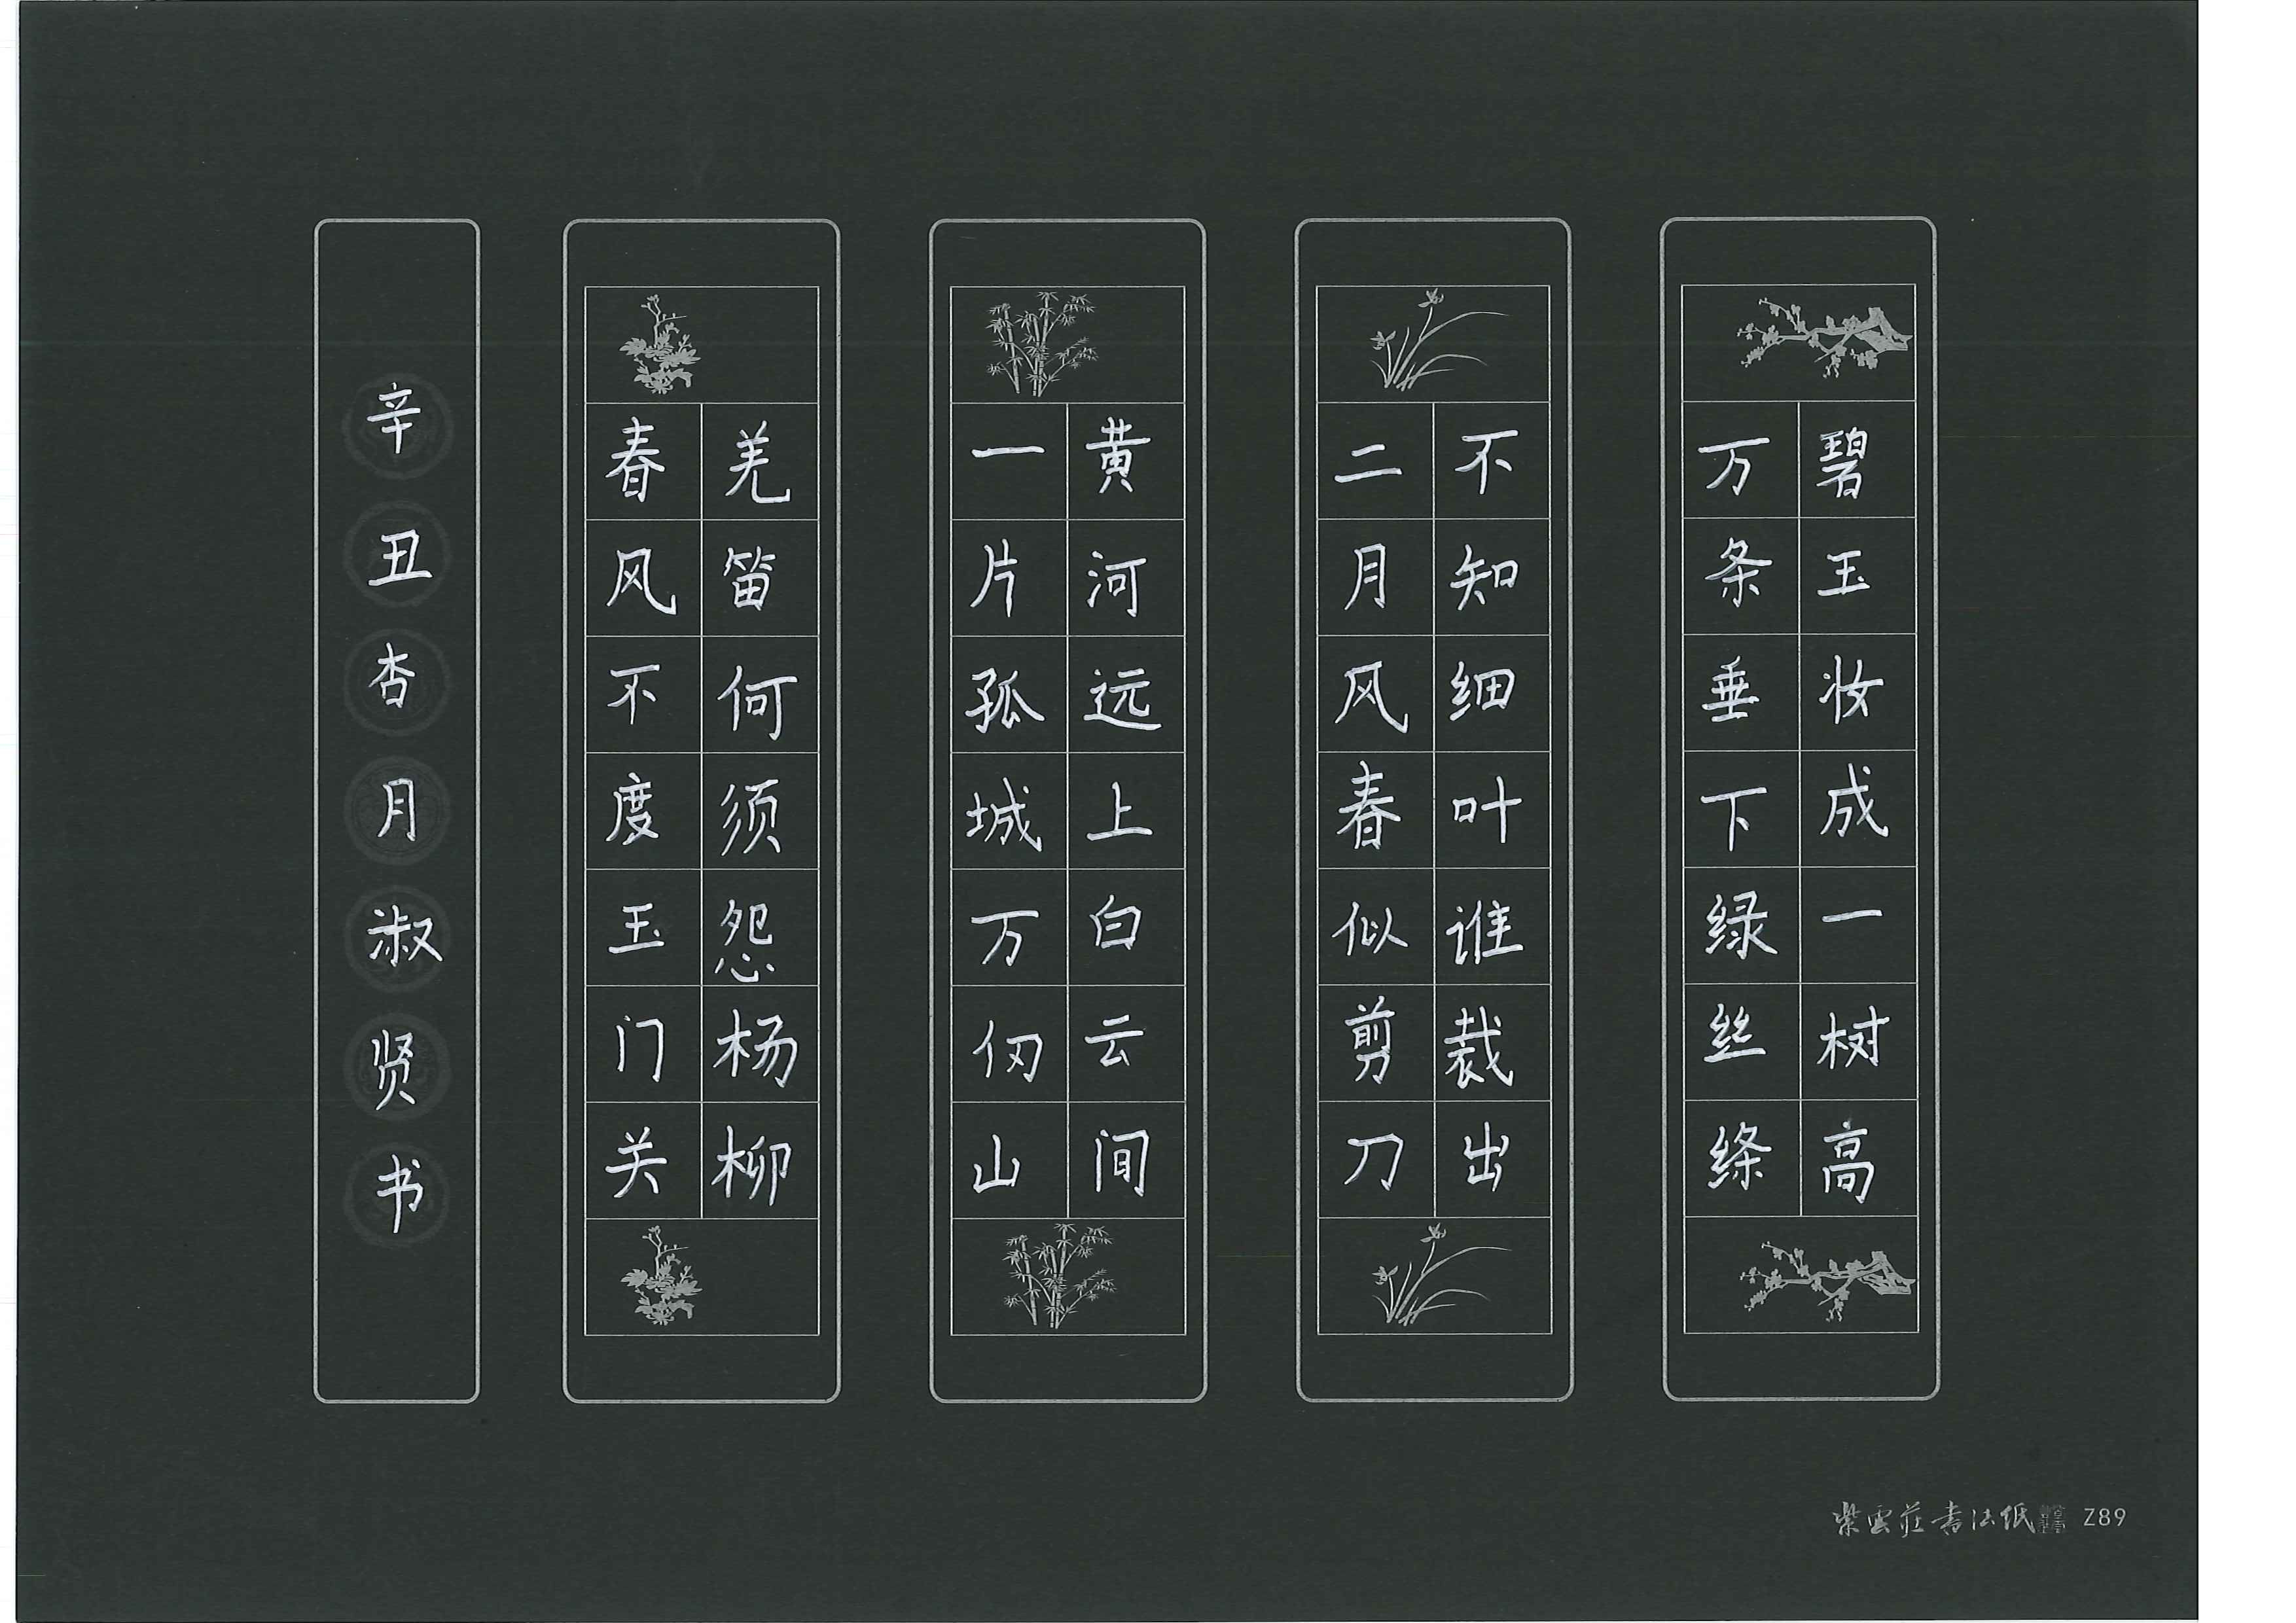 碧玉妆成一树高
万条垂下绿丝绦
不知细叶谁裁出
二月风春似剪刀
黄河远上白云间
一片孤城万仞山
羌笛何须怨杨柳
春风不度玉门关
辛丑杏月淑贤书
紫雲莊书法纸 Z89